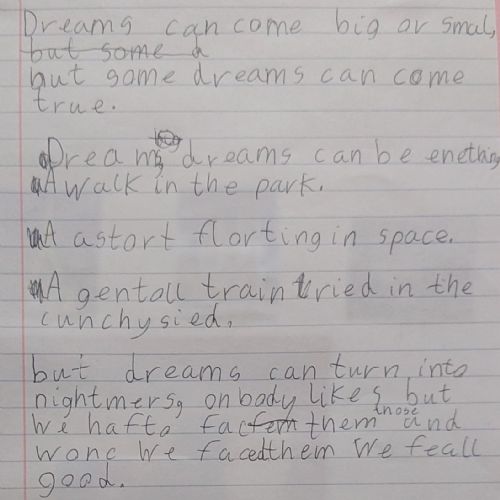 Dreams can come big or smal,
but some a
but some dreams can come
true.
Dreams dreams can be enething
A walk in the park.
A astort florting in space.
A gentoll train ried in the
cunchysied.
but dreams can turn into
nightmers, onbody likes but
we hafto fac them those and
wonc we faced them we feall
good.